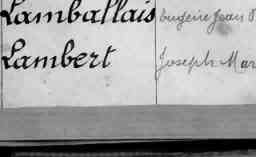 Lamballais Eugène Jean
Lambert Joseph Mar